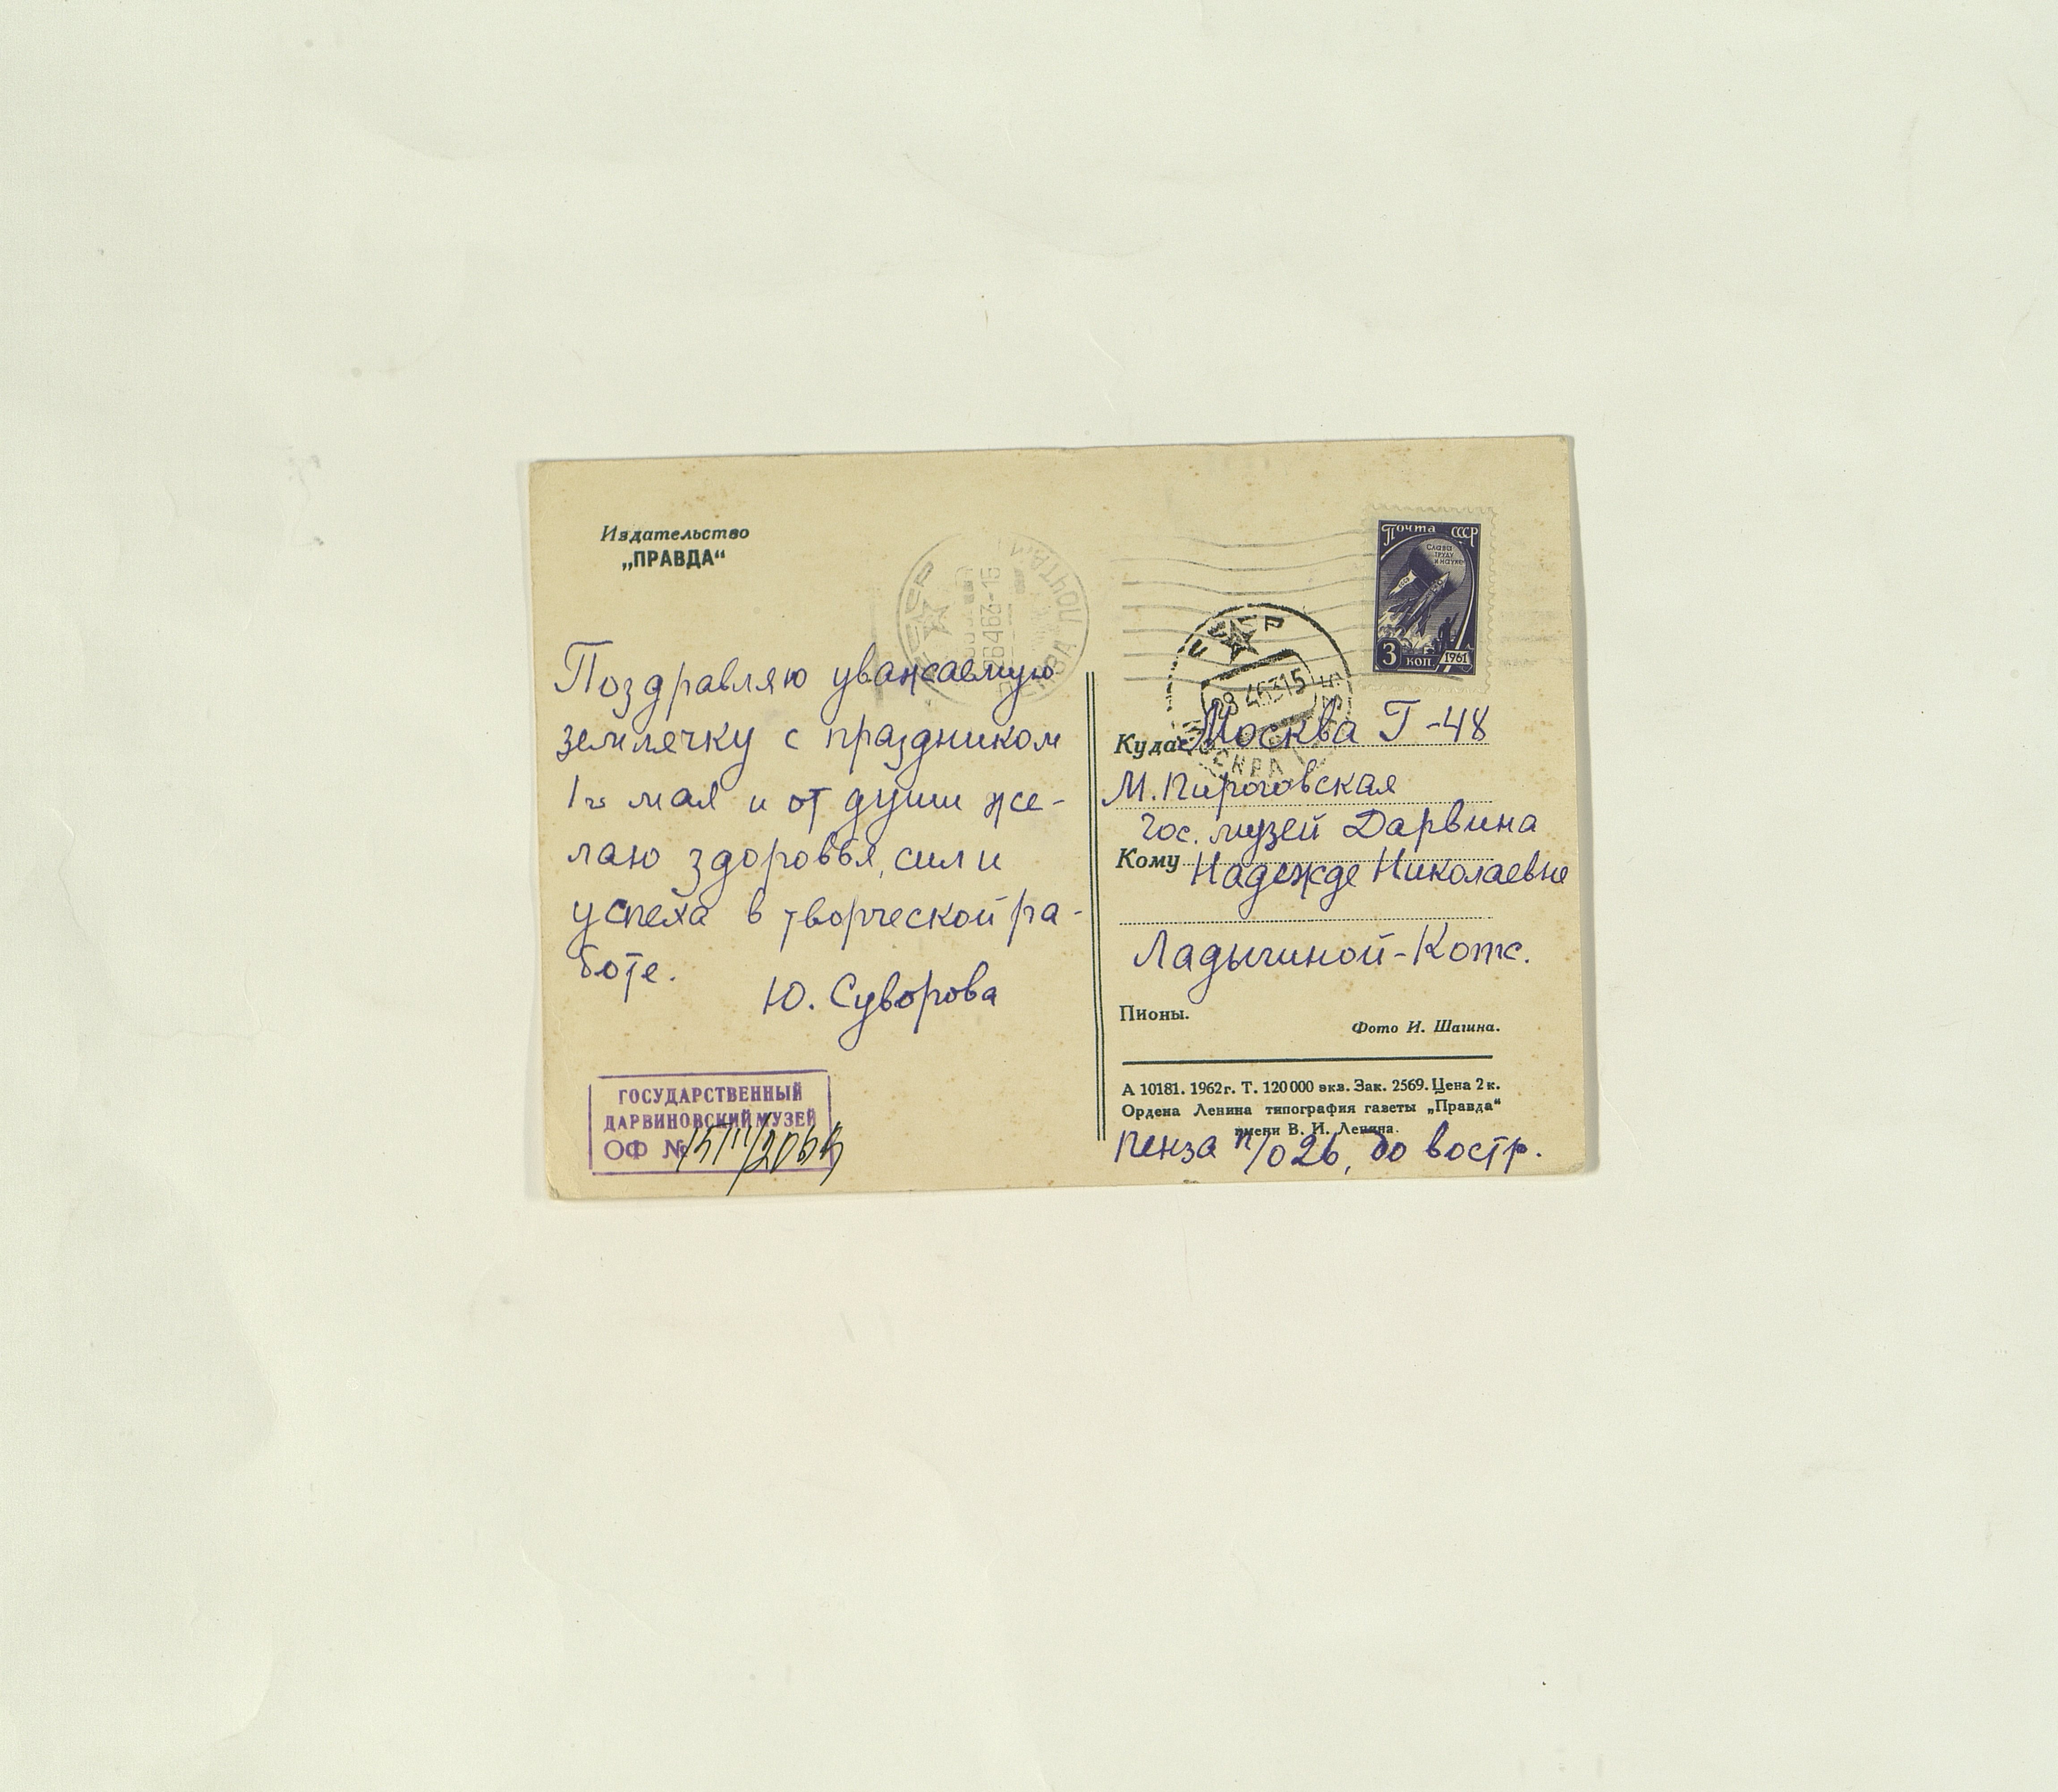 Издательство
„ПРАВДА“
Поздравляю уважаемую
землячку с праздником
1го мая и от души же-
лаю здоровья, сил и
успеха в творческой ра-
боте.
Ю. Суворова
ГОСУДАРСТВЕННЫЙ
ДАРВИНОВСКИЙ МУЗЕЙ
ОФ №
СССР
Почта СССР
Слава
труду
и науке
3 коп. 1961
СССР
28 4 63 15
Куда Москва Г-48
М. Пироговская
Гос. музей Дарвина
Кому Надежде Николаевне
Ладыгиной-Котс.
Пионы.
Фото И. Шагина.
А 10181. 1962 г. Т. 120 000 экз. Зак. 2569. Цена 2 к.
Ордена Ленина типография газеты „Правда“
имени В. И. Ленина.
Пенза п/о 26, до востр.